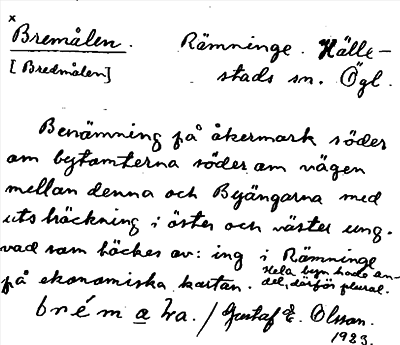 x
Bremålen. Rämninge. Hälle-
[Bredmålen] stads sn. Ögl.
Benämning på åkermark söder
om bytomterna söder om vägen
mellan denna och Byängarna med
utsträckning i öster och väster ung.
vad som täckes av: ing i Rämninge
på ekonomiska kartan. Hela byn hade an-
del, därför plural.
brémaɫa. / Gustaf E. Olsson.
1923.